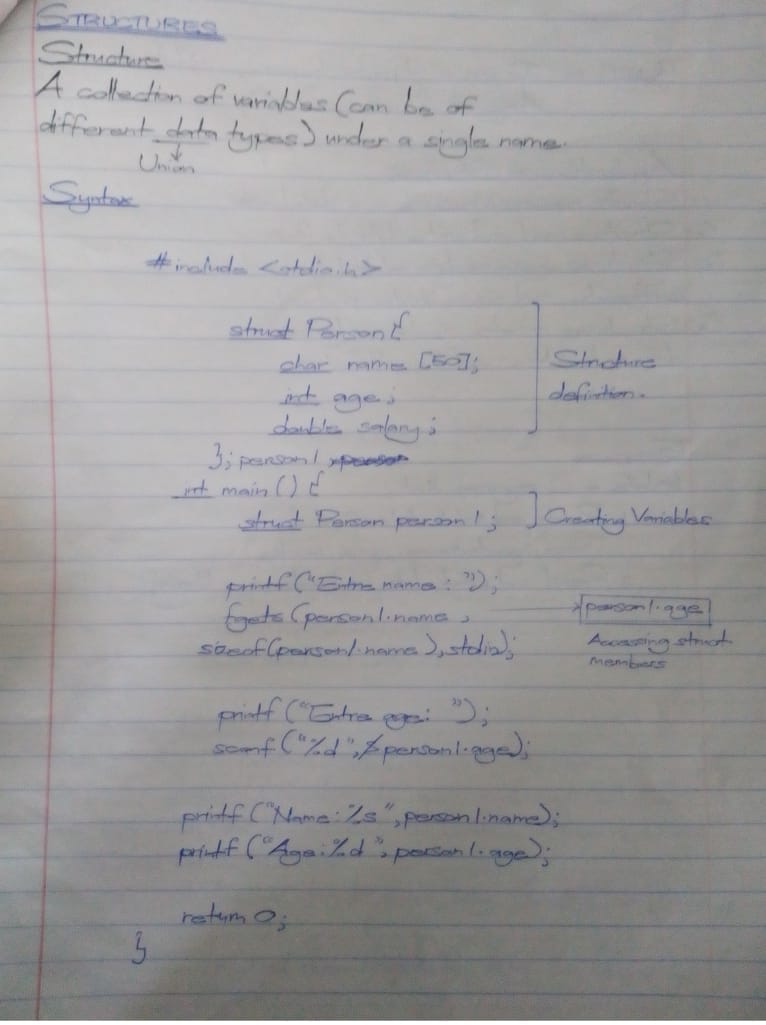 STRUCTURES
Structure
A collection of variables (can be of
different data types) under a single name.
Union
Syntax
#include <stdio.h>
struct Person{
char name [50];
int age;
double salary;
Structure
definition.
}; person1
int main () {
struct Person person1;
Creating Variables
printf ("Entre name: ");
fgets (person1.name,
sizeof(person1.name), stdin);
person1.age
Accessing struct
members
printf ("Entre age: ");
scanf ("%d", &person1.age);
printf ("Name:%s", person1.name);
printf ("Age:%d", person1.age);
return 0;
}